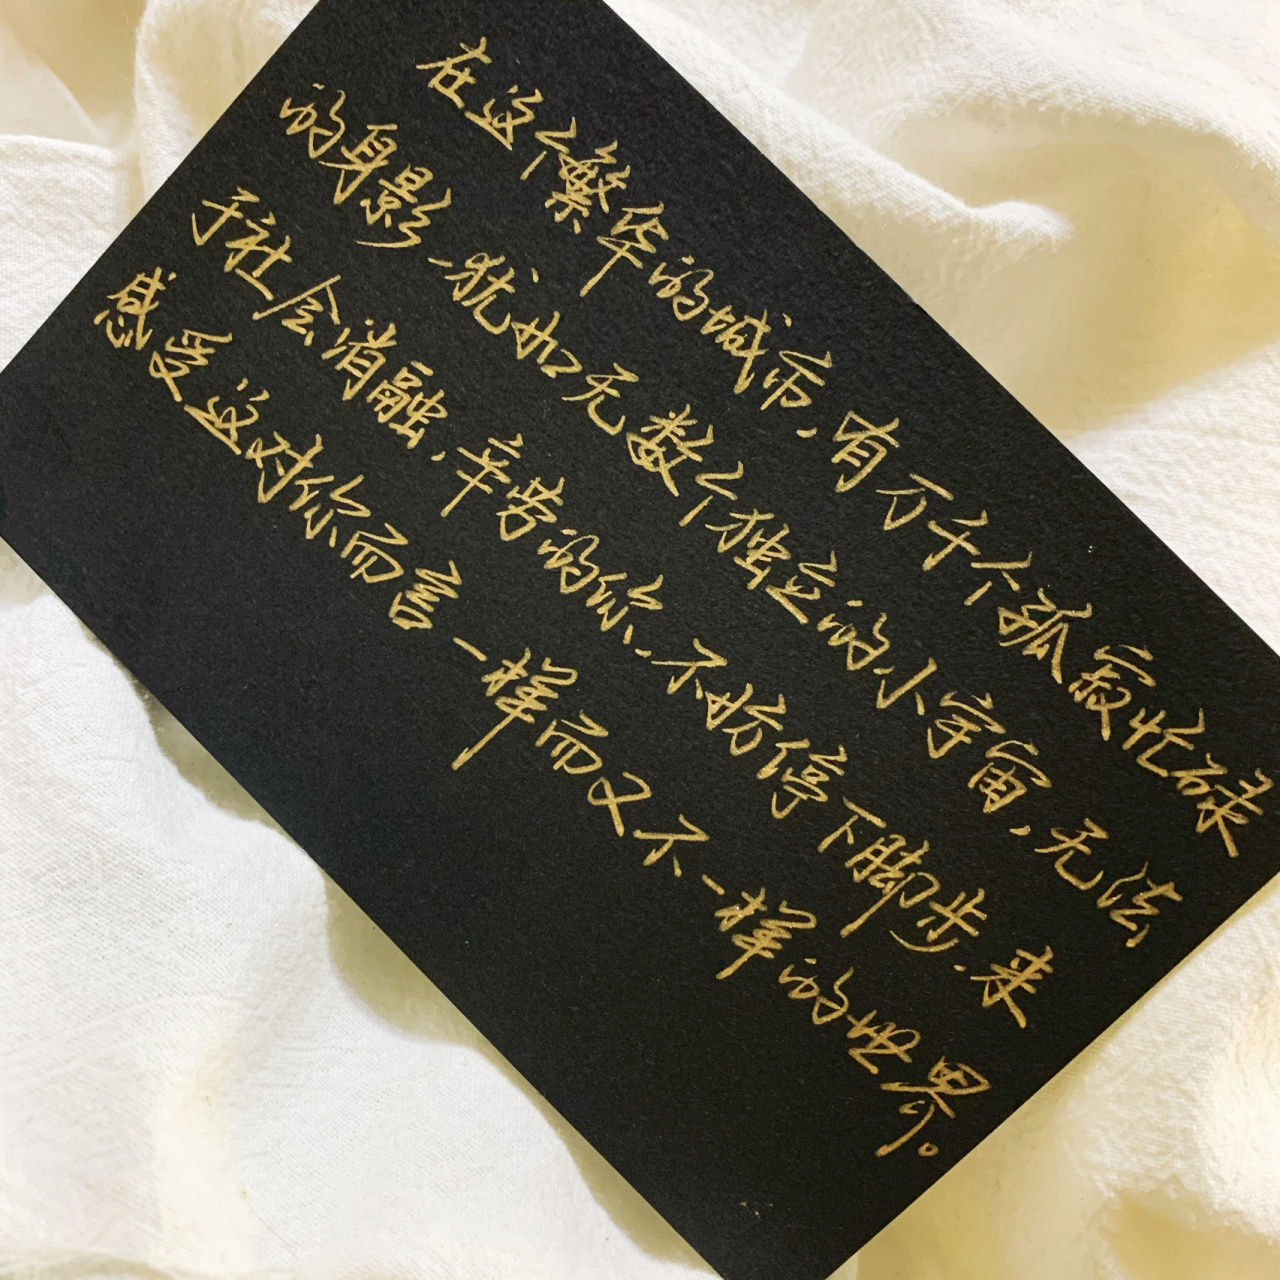 在这个繁华的城市,有万千个孤寂忙碌
的身影,犹如无数个独立的小宇宙,无法
于社会消融,辛劳的你,不妨停下脚步,来
感受这对你而言一样而又不一样的世界。